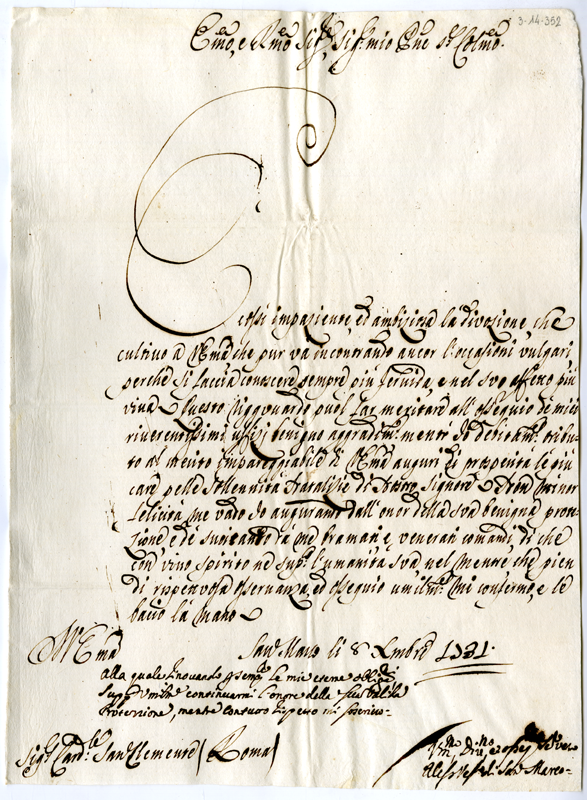 3-14-352
Emo, e Rmo Sigre, Sigr mio Pne Colmo.
Così impaziente, ed ambiziosa la divozione, che
cultivo a V Ema che pur va incontrando ancor l'occasioni vulgari
perché si faccia conoscere sempre più fervida, e nel suo affetto più
viva. Questo riguardo puol far meritare all'ossequio de miei
riverentissimi uffizi benigno aggradimto mentre do debitamte tribu-
to al merito impareggiabile di V Ema auguri di prosperità le più
care pelle Sollennità Natalizie di Nostro Signore. Non minor
felicità me vado io augurando dall'onor della sua benigna prote-
zione, e de suoi da me bramati, e venerati comandi, di che
con vivo spirito ne supco l'umanità sua, nel mentre che pien
di rispettosa osservanza, ed ossequio umilmte mi confermo, e le
bacio la mano
V Ema
San Marco li 8 Xmbre 1731.
alla quale rinovando le mie eterne
supco continuarmi l'onore della
Protezzione, mentre con tutto rispetto mi
Sigr Card.le San Clemente (Roma)
Vesco
di San Marco